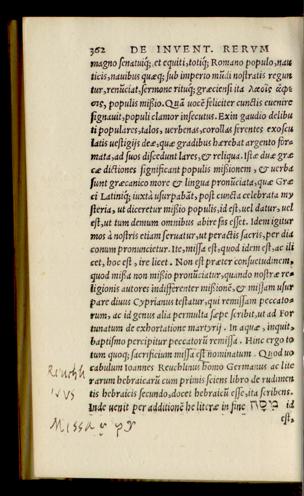 362 DE INVENT. RERVM
magno senatuiq́; et equiti, totiq́; Romano populo, nau
ticis, nauibus quæq́; sub imperio mũdi nostratis regun
tur, renũciat, sermone rituq́; græciensi ita λαοῖς ἄφε
σις, populis mißio. Quã uocẽ feliciter cunctis euenire
signauit, populi clamor insecutus. Exin gaudio delibu
ti populares, talos, uerbenas, corollas ferentes exoscu
latis uestigijs deæ, quæ gradibus hærebat argento for
mata, ad suos discedunt lares, & reliqua. Istæ duæ græ
cæ dictiones significant populis mißionem, & uerba
sunt græcanico more & lingua pronũciata, quæ Græ
ci Latiniq́; iuxtà usurpabãt, post cuncta celebrata my
steria, ut diceretur mißio populis, id est, uel datur, uel
est, ut tum demum omnibus abire fas esset. Idem igitur
mos à nostris etiam seruatur, ut peractis sacris, per dia
conum pronuncietur. Ite, missa est, quod idem est, ac ili
cet, hoc est, ire licet. Non est præter consuetudinem,
quod mißa non mißio pronũciatur, quando nostræ re=
ligionis autores indifferenter mißionẽ, & missam usur
pare diuus Cyprianus testatur, qui remissam peccato=
rum, ac id genus alia permulta sæpe scribit, ut ad For
tunatum de exhortatione martyrij. In aquæ, inquit,
baptismo percipitur peccatorũ remissa. Hinc ergo to
tum quoq; sacrificium missa est nominatum. Quod uo
cabulum Ioannes Reuchlinus homo Germanus ac lite
rarum hebraicarũ cum primis sciens libro de rudimen
tis hebraicis secundo, docet hebraicũ esse, ita scribens.
Inde uenit per additionẽ he literæ in fine מסה id
est,
Reuchli
nus
Missa